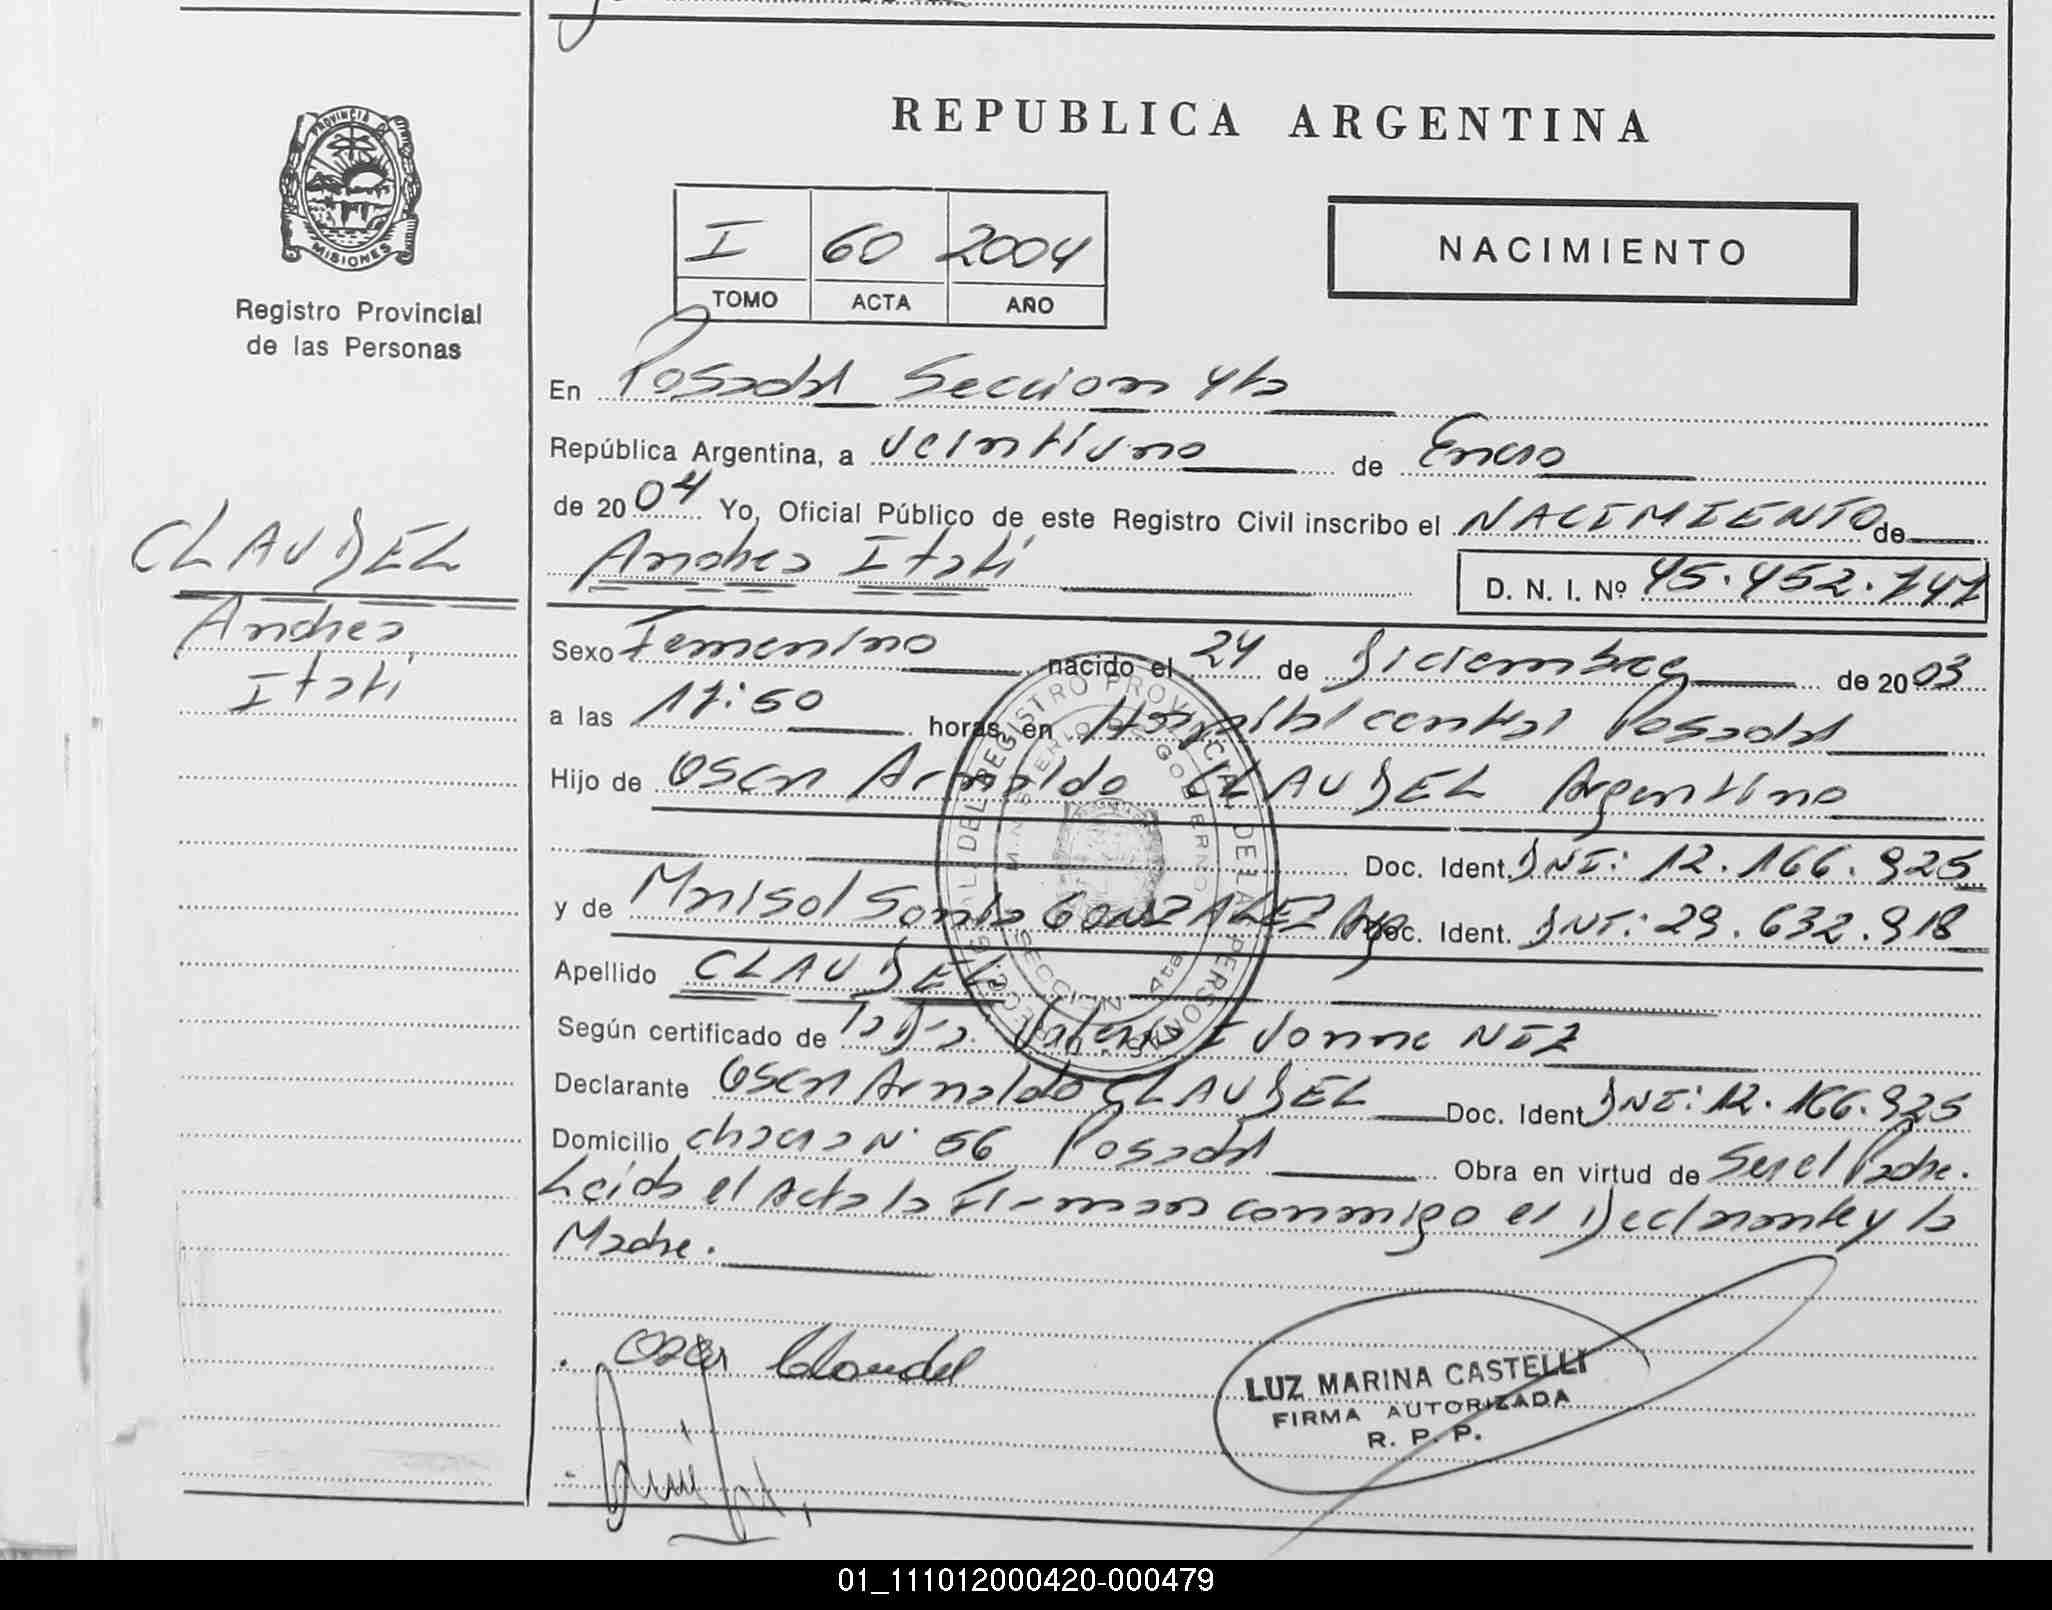 REPUBLICA ARGENTINA
PROVINCIA DE
MISIONES
Registro Provincial
de las Personas
I 60 2004
TOMO ACTA AÑO
NACIMIENTO
En Posadas Seccion 4ta
República Argentina, a veintiuno de Enero
de 2004 Yo, Oficial Público de este Registro Civil inscribo el NACIMIENTO de
Andrea Itatí
D. N. I. Nº 45.452.747
CLAUDEL
Andrea
Itatí
Sexo Femenino nacido el 24 de Diciembre de 2003
a las 17:50 horas, en Hospital central Posadas
Hijo de Oscar Arnaldo CLAUDEL Argentino
Doc. Ident. DNI: 12.166.925
y de Marisol Sonia GONZALEZ Arg. Doc. Ident. DNI: 29.632.918
Apellido CLAUDEL
Según certificado de la Dra. Valeria Ivonne NIZ
Declarante Oscar Arnaldo CLAUDEL Doc. Ident DNI: 12.166.925
Domicilio chacra Nº 56 Posadas Obra en virtud de Ser el Padre.
Leida el Acta la Firman conmigo el Declarante y la
Madre.
DEL REGISTRO PROVINCIAL DE LAS PERSONAS
MINISTERIO DE GOBIERNO
SECCION 4ta
Oscar Claudel
LUZ MARINA CASTELLI
FIRMA AUTORIZADA
R. P. P.
01_111012000420-000479